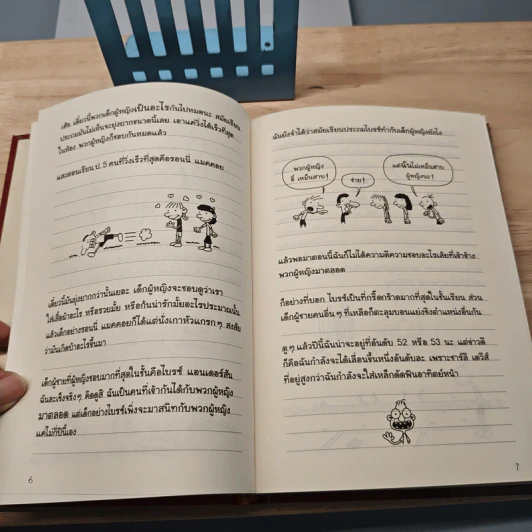 เฮ้อ เดี๋ยวนี้พวกเด็กผู้หญิงเป็นอะไรกันไปหมดนะ สมัยเรียน
ประถมมันไม่เห็นจะยุ่งยากขนาดนี้เลย เอาแค่วิ่งได้เร็วที่สุด
ในห้อง พวกผู้หญิงก็ชอบกันหมดแล้ว
และตอนเรียน ป. 5 คนที่วิ่งเร็วที่สุดคือรอนนี่ แมคคอย
เดี๋ยวนี้มันยุ่งยากกว่านั้นเยอะ เด็กผู้หญิงจะชอบดูว่าเรา
ใส่เสื้อผ้าอะไร หรือรวยมั้ย หรือก้นน่ารักมั้ยอะไรประมาณนั้น
แล้วเด็กอย่างรอนนี่ แมคคอยก็ได้แต่นั่งเกาหัวแกรกๆ สงสัย
ว่ามันเกิดบ้าอะไรขึ้นมา
เด็กผู้ชายที่ผู้หญิงชอบมากที่สุดในชั้นคือไบรซ์ แอนเดอร์สัน
ฉันละเซ็งจริงๆ คิดดูสิ ฉันเป็นคนที่เข้ากันได้กับพวกผู้หญิง
มาตลอด แต่เด็กอย่างไบรซ์เพิ่งจะมาสนิทกับพวกผู้หญิง
แค่ไม่กี่ปีนี้เอง
6
ฉันยังจำได้ว่าสมัยเรียนประถมไบรซ์ทำกับเด็กผู้หญิงยังไง
พวกผู้หญิง
ขี้ เหม็นสาบ!
ช่าย!
แต่ฉันไม่เหม็นสาบ
ผู้หญิงนะ!
แล้วพอมาตอนนี้ฉันก็ไม่ได้ความดีความชอบอะไรเลยที่เข้าข้าง
พวกผู้หญิงมาตลอด
ก็อย่างที่บอก ไบรซ์เป็นที่กรี๊ดกร๊าดมากที่สุดในชั้นเรียน ส่วน
เด็กผู้ชายคนอื่นๆ ที่เหลือก็ตะลุมบอนแย่งชิงตำแหน่งอื่นกัน
ดูๆ แล้วปีนี้ฉันน่าจะอยู่ที่อันดับ 52 หรือ 53 นะ แต่ข่าวดี
ก็คือฉันกำลังจะได้เลื่อนขึ้นหนึ่งอันดับละ เพราะชาร์ลี เดวีส์
ที่อยู่สูงกว่าฉันกำลังจะใส่เหล็กดัดฟันอาทิตย์หน้า
7